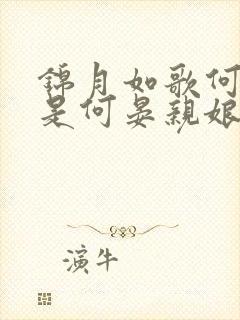 錦月如歌何
是何晏親娘
演牛